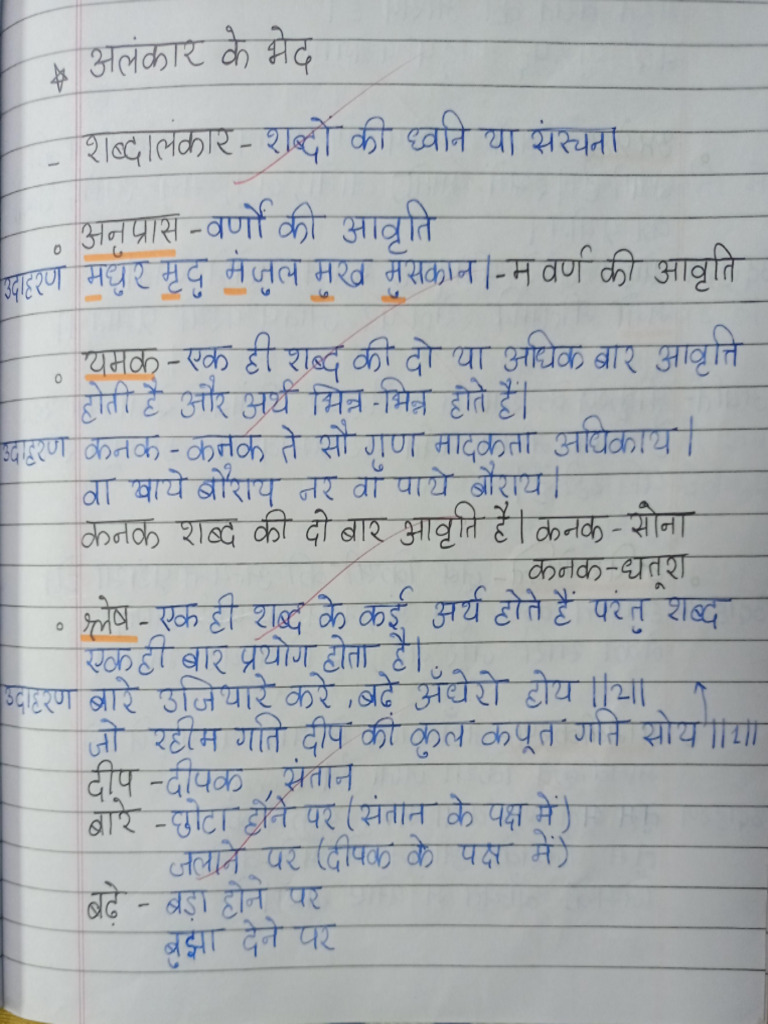 * अलंकार के भेद
- शब्दालंकार - शब्दों की ध्वनि या संरचना
• अनुप्रास - वर्णों की आवृति
उदाहरण मधुर मृदु मंजुल मुख मुसकान। - म वर्ण की आवृति
• यमक - एक ही शब्द की दो या अधिक बार आवृति
होती है और अर्थ भिन्न-भिन्न होते हैं।
उदाहरण कनक - कनक ते सौ गुण मादकता अधिकाय।
वा खाये बौराय नर वा पाये बौराय।
कनक शब्द की दो बार आवृति है। कनक - सोना
कनक - धतूरा
• श्लेष - एक ही शब्द के कई अर्थ होते हैं परंतु शब्द
एक ही बार प्रयोग होता है।
उदाहरण बारे उजियारे करे, बढे अँधेरो होय ॥2॥ ↑
जो रहीम गति दीप की कुल कपूत गति सोय ॥1॥
दीप - दीपक, संतान
बारे - छोटा होने पर (संतान के पक्ष में)
जलाने पर (दीपक के पक्ष में)
बढ़े - बड़ा होने पर
बुझा देने पर